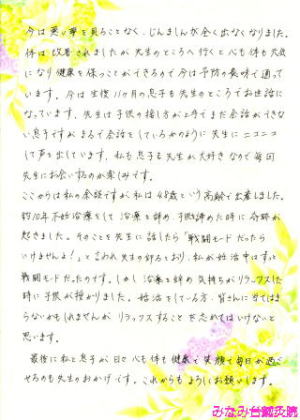 今は悪い夢を見ることなく、じんましんが全く出なくなりました。
体は改善されましたが先生のところへ行くと心も体も元気
になり健康を保つことができるので今は予防の意味で通って
います。今は生後11ヶ月の息子も先生のところでお世話に
なっています。先生は子供の接し方が上手でまだ会話ができな
い息子ですがまるで会話をしているかのように先生にニコニコ
して声を出しています。私も息子も先生が大好きなので毎回
先生にお会いするのが楽しみです。
ここからは私の余談ですが私は48歳という高齢で出産しました。
約10年不妊治療をして治療を辞め子供を諦めた時に奇跡が
起きました。そのことを先生に話したら「戦闘モードだったら
いけませんよ！」と言われ先生の仰るとおり、私が妊活中はずっと
戦闘モードだったのです。しかし治療を辞め気持ちがリラックスした
時に子供が授かりました。妊活をしている方、皆さんに当てはま
らないかもしれませんがリラックスすることを忘れてはいけないと
思います。
最後に私と息子が日々心も体も健康で笑顔で毎日が過ご
せるのも先生のおかげです。これからもよろしくお願いします。
みなみ台鍼灸院